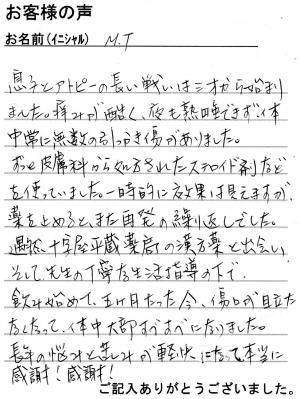 お客様の声
お名前(イニシャル) M.T
息子とアトピーの長い戦いは二才から始まり
ました。痒みが酷く、夜も熟睡できず、体
中常に無数の引っかき傷がありました。
ずっと皮膚科から処方されたステロイド剤など
を使っていました。一時的に効果は見えますが、
薬を止めると、また再発の繰り返しでした。
偶然、十字屋平蔵薬局の漢方薬と出会い、
そして先生の丁寧な生活指導の下で、
飲み始めて、五ヶ月たった今、傷口が目立た
なくなって、体中大部すべすべになりました。
長年の悩みと苦しみが軽快になって本当に
感謝!感謝!
ご記入ありがとうございました。